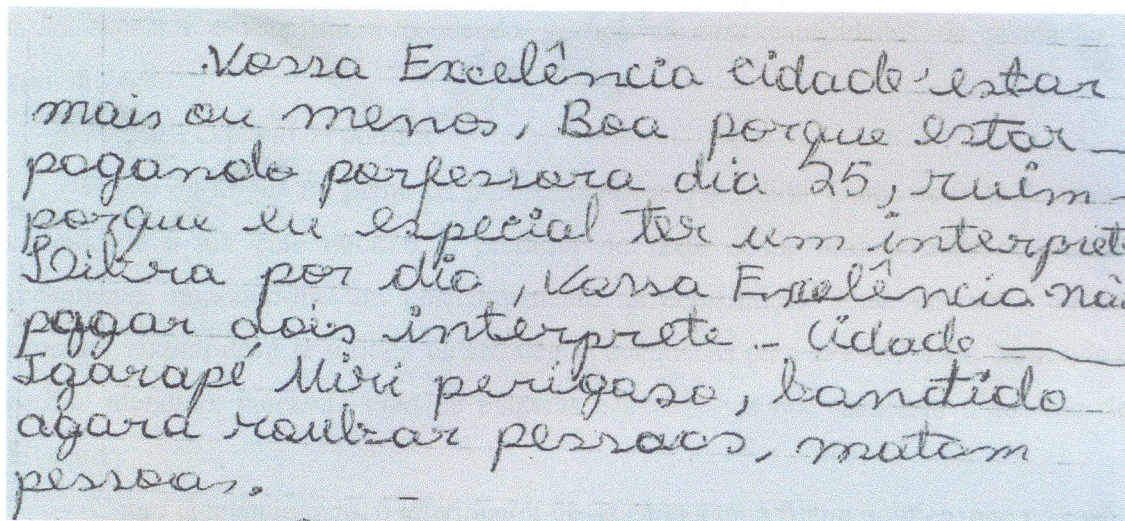 Vossa Excelência cidade estar
mais ou menos, Boa porque estar
pagando porfessora dia 25, ruim
porque eu especial ter um interprete
Libra por dia, Vossa Excelência não
pagar dois interprete - Cidade
Igarapé Miri perigoso, bandido
agara roubar pessoas, matam
pessoas.